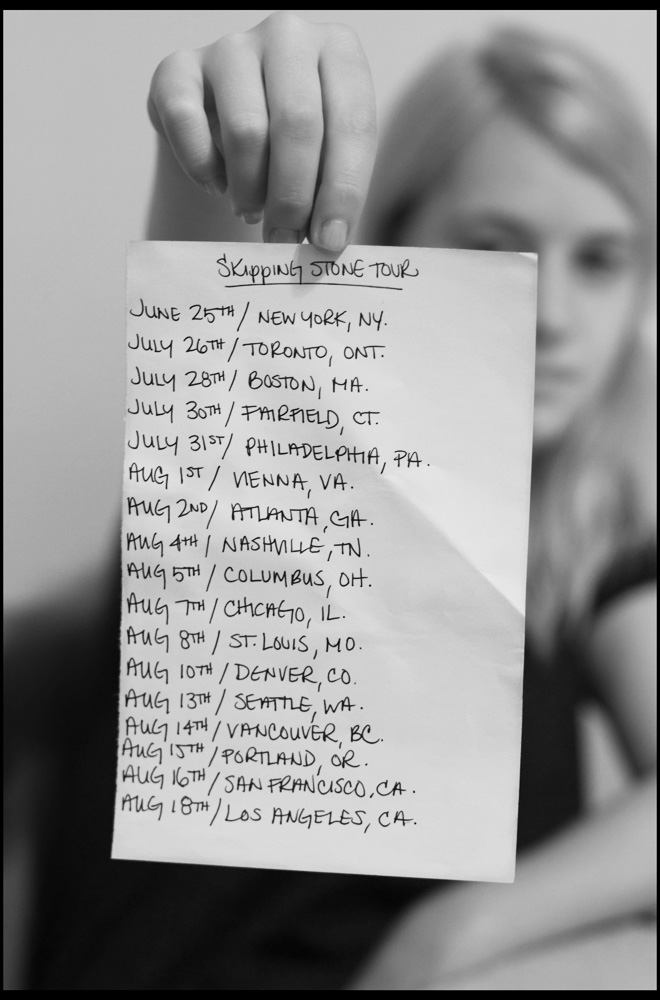 SKIPPING STONE TOUR
JUNE 25TH / NEW YORK, NY.
JULY 26TH / TORONTO, ONT.
JULY 28TH / BOSTON, MA.
JULY 30TH / FAIRFIELD, CT.
JULY 31ST / PHILADELPHIA, PA.
AUG 1ST / VIENNA, VA.
AUG 2ND / ATLANTA, GA.
AUG 4TH / NASHVILLE, TN.
AUG 5TH / COLUMBUS, OH.
AUG 7TH / CHICAGO, IL.
AUG 8TH / ST. LOUIS, MO.
AUG 10TH / DENVER, CO.
AUG 13TH / SEATTLE, WA.
AUG 14TH / VANCOUVER, BC.
AUG 15TH / PORTLAND, OR.
AUG 16TH / SAN FRANCISCO, CA.
AUG 18TH / LOS ANGELES, CA.